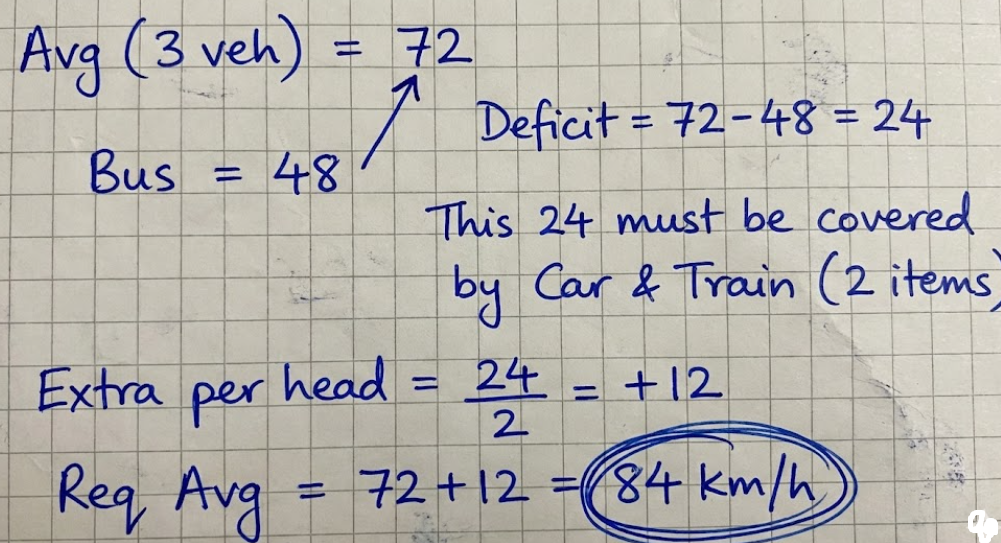 Avg (3 veh) = 72
Bus = 48
Deficit = 72-48 = 24
This 24 must be covered
by Car & Train (2 items)
Extra per head = 24/2 = +12
Req Avg = 72+12 = 84 km/h